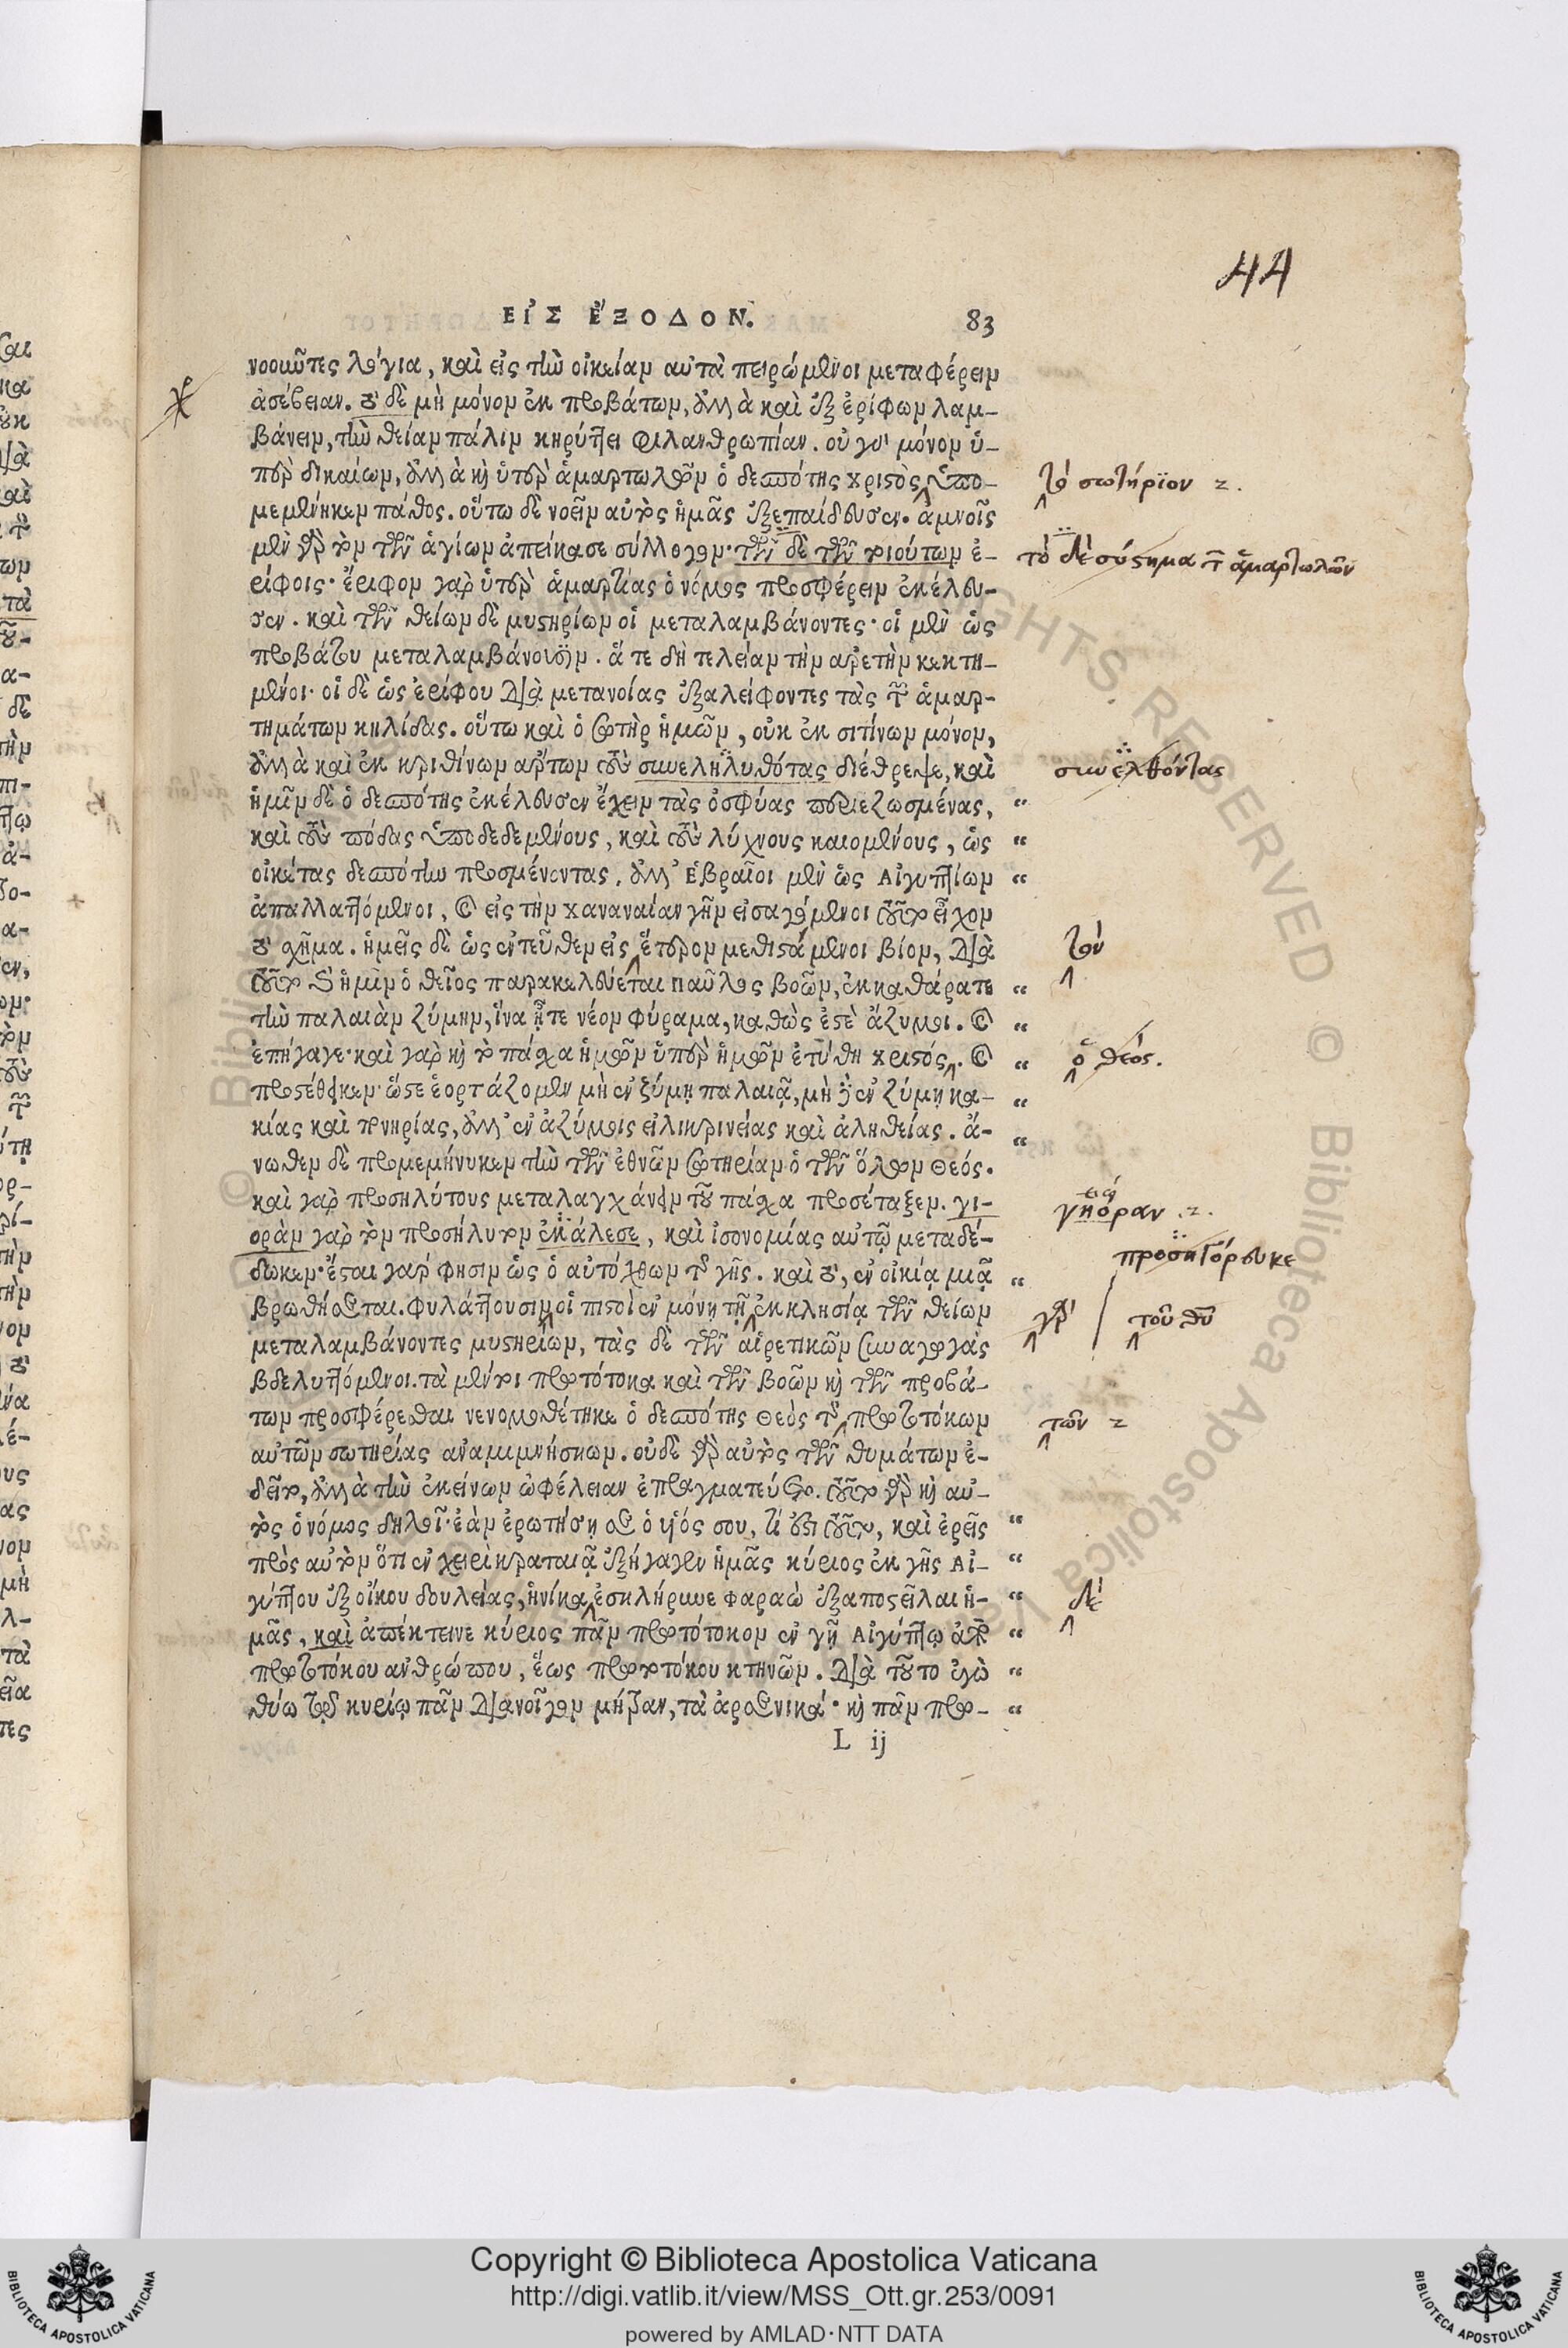 44
ΕΙ᾿Σ ἜΞΟΔΟΝ. 83
νοοιῶτες λόγια, καὶ εἰς τὴν οἰκείαν αὐτὰ πειρώμενοι μεταφέρειν
ἀσέβειαν. τὸ δὲ μὴ μόνον ἐκ προβάτων, ἀλλὰ καὶ ἐξ ἐρίφων λαμ-
βάνειν, τὴν θείαν πάλιν κηρύττει φιλανθρωπίαν. οὐ γὰρ μόνον ὑ-
πὲρ δικαίων, ἀλλὰ καὶ ὑπὲρ ἁμαρτωλῶν ὁ δεσπότης χριστὸς ὑπο- τὸ σωτήριον
μεμένηκεν πάθος. οὕτω δὲ νοεῖν αὐτὸς ἡμᾶς ἐξεπαίδευσεν. ἀμνοῖς
μὲν γὰρ τὸν τῶν ἁγίων ἀπείκασε σύλλογον· τῶν δὲ τῶν τοιούτων ἐ- τὸ δὲ σύστημα τῶν ἁμαρτωλῶν
ρίφοις· ἔριφον γὰρ ὑπὲρ ἁμαρτίας ὁ νόμος προσφέρειν ἐκέλευ-
σεν. καὶ τῶν θείων δὲ μυστηρίων οἱ μεταλαμβάνοντες· οἱ μὲν ὡς
προβάτου μεταλαμβάνουσιν. ἅ τε δὴ τελείαν τὴν ἀρετὴν κεκτη-
μένοι· οἱ δὲ ὡς ἐρίφου διὰ μετανοίας ἐξαλείφοντες τὰς τῶν ἁμαρ-
τημάτων κηλίδας. οὕτω καὶ ὁ σωτὴρ ἡμῶν, οὐκ ἐκ σιτίνων μόνον,
ἀλλὰ καὶ ἐκ κριθίνων ἄρτων τοὺς συνεληλυθότας διέθρεψε, καὶ συνελθόντας
ἡμῖν δὲ ὁ δεσπότης ἐκέλευσεν ἔχειν τὰς ὀσφύας περιεζωσμένας, “
καὶ τοὺς πόδας ὑποδεδεμένους, καὶ τοὺς λύχνους καιομένους, ὡς “
οἰκέτας δεσπότην προσμένοντας. ἀλλ᾿ Ἑβραῖοι μὲν ὡς Αἰγυπτίων “
ἀπαλλαττόμενοι, καὶ εἰς τὴν Χαναναίαν γῆν εἰσαγόμενοι τοῦτο εἶχον
τὸ σχῆμα. ἡμεῖς δὲ ὡς ἐντεῦθεν εἰς ἕτερον μεθιστάμενοι βίον, διὰ τὸν
τοῦτο καὶ ἡμῖν ὁ θεῖος παρακελεύεται Παῦλος βοῶν, ἐκκαθάρατε “
τὴν παλαιὰν ζύμην, ἵνα ἦτε νέον φύραμα, καθὼς ἐστὲ ἄζυμοι. καὶ “
ἐπήγαγε· καὶ γὰρ καὶ τὸ πάσχα ἡμῶν ὑπὲρ ἡμῶν ἐτύθη χριστός. καὶ “ ὁ θεός.
προσέθηκεν· ὥστε ἑορτάζομεν μὴ ἐν ξύμῃ παλαιᾷ, μὴ δὲ ἐν ζύμῃ κα- “
κίας καὶ πονηρίας, ἀλλ᾿ ἐν ἀζύμοις εἰλικρινείας καὶ ἀληθείας. ἄ- “
νωθεν δὲ προμεμήνυκεν τὴν τῶν ἐθνῶν σωτηρίαν ὁ τῶν ὅλων Θεός.
καὶ γὰρ προσηλύτους μεταλαγχάνειν τοῦ πάσχα προσέταξεν. γι- γηόραν
οράμ γὰρ τὸν προσήλυτον ἐκάλεσε, καὶ ἰσονομίας αὐτῷ μεταδέ- προσηγόρευκε
δωκεν· ἔσται γάρ φησιν ὡς ὁ αὐτόχθων τῆς γῆς. καὶ τὸ, ἐν οἰκίᾳ μιᾷ “
βρωθήσεται. φυλάττουσιν οἱ πιστοὶ ἐν μόνῃ τῇ ἐκκλησίᾳ τῶν θείων γὰρ τοῦ θυ
μεταλαμβάνοντες μυστηρίων, τὰς δὲ τῶν αἱρετικῶν συναγωγὰς
βδελυττόμενοι. τὰ μέντοι πρωτότοκα καὶ τῶν βοῶν καὶ τῶν προβά-
των προσφέρεσθαι νενομοθέτηκε ὁ δεσπότης Θεὸς τῆς πρωτοτόκων τῶν
αὐτῶν σωτηρίας ἀναμιμνήσκων. οὐδὲ γὰρ αὐτὸς τῶν θυμάτων ἐ-
δεῖτο, ἀλλὰ τὴν ἐκείνων ὠφέλειαν ἐπραγματεύετο. τοῦτο γὰρ καὶ αὐ-
τὸς ὁ νόμος δηλοῖ· ἐὰν ἐρωτήσῃ σε ὁ υἱός σου, τί ἐστι τοῦτο, καὶ ἐρεῖς “
πρὸς αὐτὸν ὅτι ἐν χειρὶ κραταιᾷ ἐξήγαγεν ἡμᾶς κύριος ἐκ γῆς Αἰ- “
γύπτου ἐξ οἴκου δουλείας, ἡνίκα ἐσκλήρυνε Φαραὼ ἐξαποστεῖλαι ἡ- “ δὲ
μᾶς, καὶ ἀπέκτεινε κύριος πᾶν πρωτότοκον ἐν γῇ Αἰγύπτῳ ἀπὸ “
πρωτοτόκου ἀνθρώπου, ἕως πρωτοτόκου κτηνῶν. διὰ τοῦτο ἐγὼ “
θύω τῷ κυρίῳ πᾶν διανοῖγον μήτραν, τὰ ἀρσενικά· καὶ πᾶν πρω- “
L ij
Copyright © Biblioteca Apostolica Vaticana
http://digi.vatlib.it/view/MSS_Ott.gr.253/0091
powered by AMLAD·NTT DATA